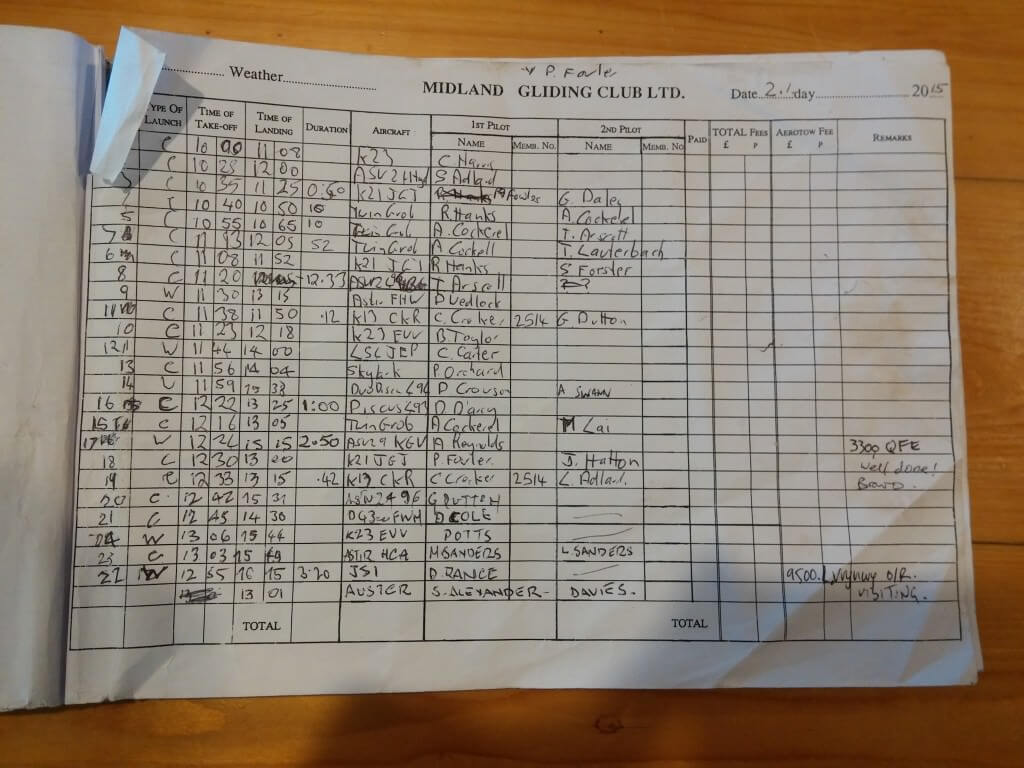 Y P. Fowler
Weather
MIDLAND GLIDING CLUB LTD.
Date 2.1 day 2015
TYPE OF LAUNCH TIME OF TAKE-OFF TIME OF LANDING DURATION AIRCRAFT 1ST PILOT NAME MEMB. NO. 2ND PILOT NAME MEMB. NO. PAID TOTAL FEES £ P AEROTOW FEE £ P REMARKS
C 10 00 11 08 K23 C Harris
C 10 28 12 00 S Adlard
C 10 35 11 25 0:50 K21 JGJ P Fowler G. Daley
10 40 10 50 10 Twin Grob R Hanks A. Cockerel
5 C 10 55 10 65 10 Twin Grob A. Cockerel T. Arscott
7 C 11 13 12 05 52 Twin Grob A Cockell T. Lauterbach
6 C 11 08 11 52 K21 JGJ R Hanks S Forster
8 C 11 20 12.33
9 W 11 30 13 15 Astir FHW D Vedlock
11 C 11 38 11 50 .12 K13 CKR C. Croker 2514 G Dutton
10 C 11 23 12 18 K23 EVV B. Taylor
12 W 11 44 14 00 LS6 JEP C. Carter
13 C 11 56 14 04 P. Orchard
14 11 59 15 38 D Crowson A SWANN
16 C 12 22 13 25 1:00 Discus 493 D D'arcy
15 C 12 16 13 05 Twin Grob A Cockerel M Lai
17 W 12 24 15 15 2.50 ASW29 KGV A Reynolds 3300 QFE
18 C 12 30 13 00 K21 JGJ P. Fowler J. Hatton well done!
19 C 12 33 13 15 .42 K13 CKR C Croker 2514 L. Adlard.
20 C 12 42 15 31 ASW24 96 G DUTTON
21 C 12 45 14 30 FWH D COLE
W 13 06 15 44 K23 EVV POTTS
23 C 13 03 15 49 ASTIR HCA M SANDERS L. SANDERS
22 W 12 55 16 15 3.20 JS1 D. RANCE 9500. Vyrnwy O/R.
13 01 AUSTER S. ALEXANDER - DAVIES. VISITING.
TOTAL TOTAL